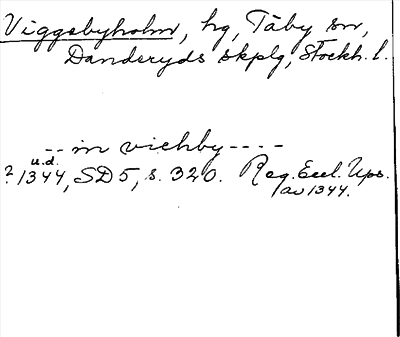 Viggebyholm, hg, Täby sn,
Danderyds skplg, Stockh. l.
-- in vichby ----
u.d.
? 1344, SD 5, s. 320. Reg. Eccl. Ups.
av 1344.